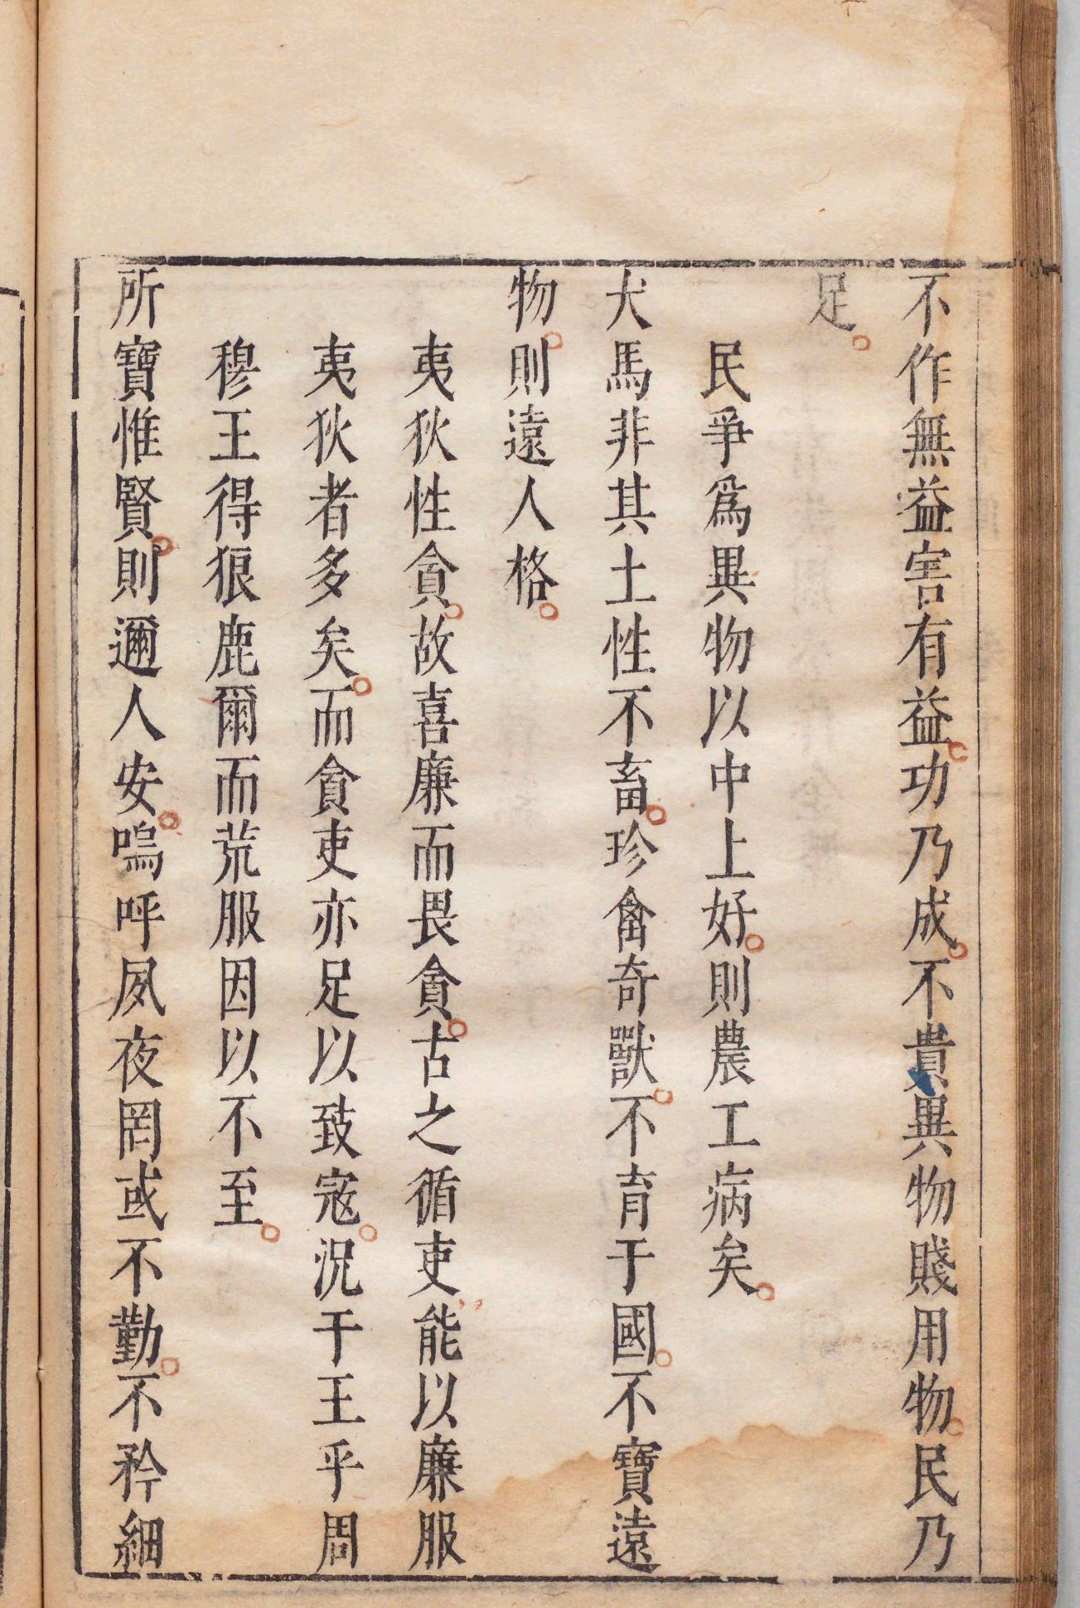 不作無益害有益功乃成不貴異物賤用物民乃
足
民爭爲異物以中上好則農工病矣
犬馬非其土性不畜珍禽奇獸不育于國不寶遠
物則遠人格
夷狄性貪故喜廉而畏貪古之循吏能以廉服
夷狄者多矣而貪吏亦足以致寇況于王乎周
穆王得狼鹿爾而荒服因以不至
所寶惟賢則邇人安嗚呼夙夜罔或不勤不矜細